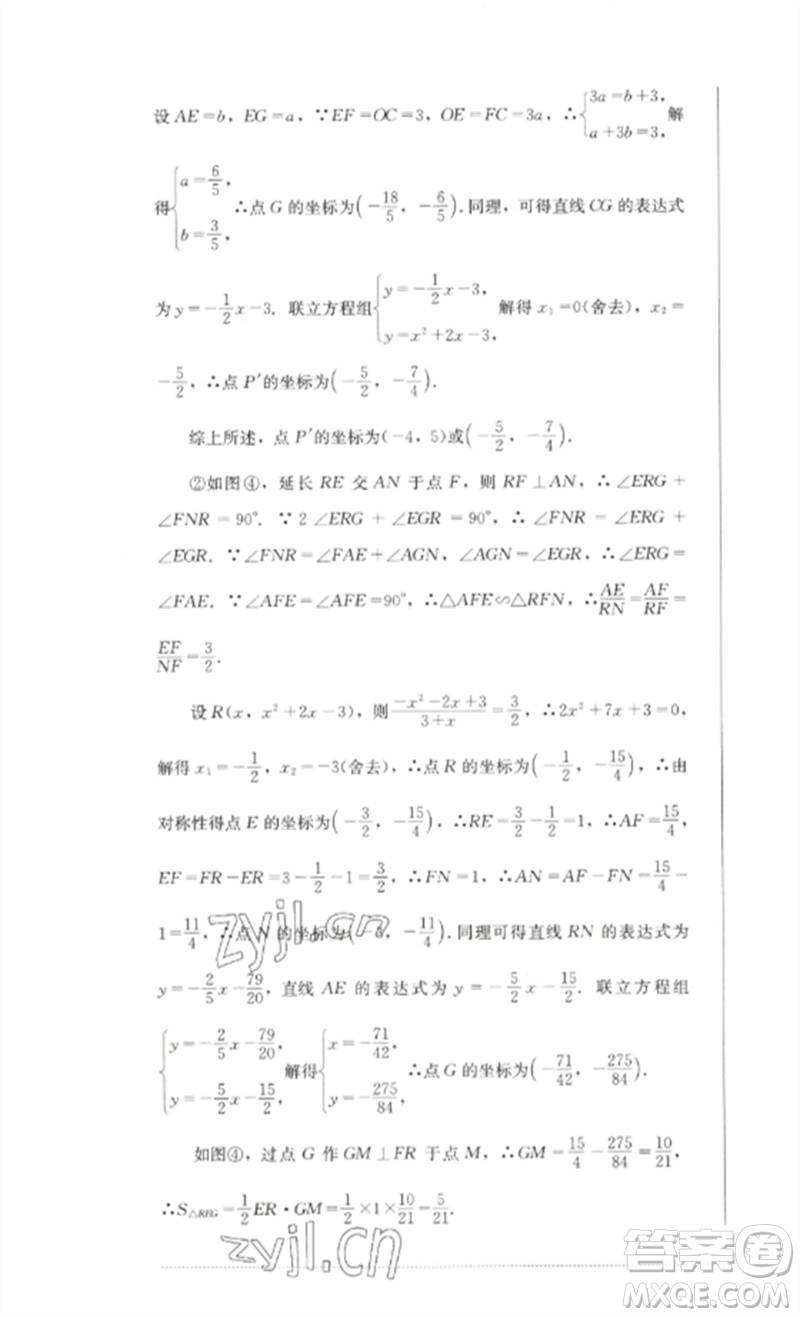 设 AE=b, EG=a, ∵EF=OC=3, OE=FC=3a, ∴{3a=b+3, a+3b=3, 解
得{a=6/5, b=3/5, ∴点 G 的坐标为(-18/5, -6/5). 同理, 可得直线 CG 的表达式
为 y=-1/2x-3. 联立方程组{y=-1/2x-3, y=x²+2x-3, 解得 x₁=0(舍去), x₂=
-5/2, ∴点 P′的坐标为(-5/2, -7/4).
综上所述, 点 P′的坐标为(-4, 5)或(-5/2, -7/4).
②如图④, 延长 RE 交 AN 于点 F, 则 RF⊥AN, ∴∠ERG+
∠FNR=90°. ∵2∠ERG+∠EGR=90°, ∴∠FNR=∠ERG+
∠EGR. ∵∠FNR=∠FAE+∠AGN, ∠AGN=∠EGR, ∴∠ERG=
∠FAE. ∵∠AFE=∠AFE=90°, ∴△AFE∽△RFN, ∴AE/RN=AF/RF=
EF/NF=3/2.
设 R(x, x²+2x-3), 则(-x²-2x+3)/(3+x)=3/2, ∴2x²+7x+3=0,
解得 x₁=-1/2, x₂=-3(舍去), ∴点 R 的坐标为(-1/2, -15/4), ∴由
对称性得点 E 的坐标为(-3/2, -15/4), ∴RE=3/2-1/2=1, ∴AF=15/4,
EF=FR-ER=3-1/2-1=3/2, ∴FN=1, ∴AN=AF-FN=15/4-
1=11/4, ∴点 N 的坐标为(-3, -11/4). 同理可得直线 RN 的表达式为
y=-2/5x-79/20, 直线 AE 的表达式为 y=-5/2x-15/2. 联立方程组
{y=-2/5x-79/20, y=-5/2x-15/2, 解得{x=-71/42, y=-275/84, ∴点 G 的坐标为(-71/42, -275/84).
如图④, 过点 G 作 GM⊥FR 于点 M, ∴GM=15/4-275/84=10/21,
∴S△REG=1/2ER·GM=1/2×1×10/21=5/21.
zyjl.cn
zyjl.cn
答案卷
MXQE.COM